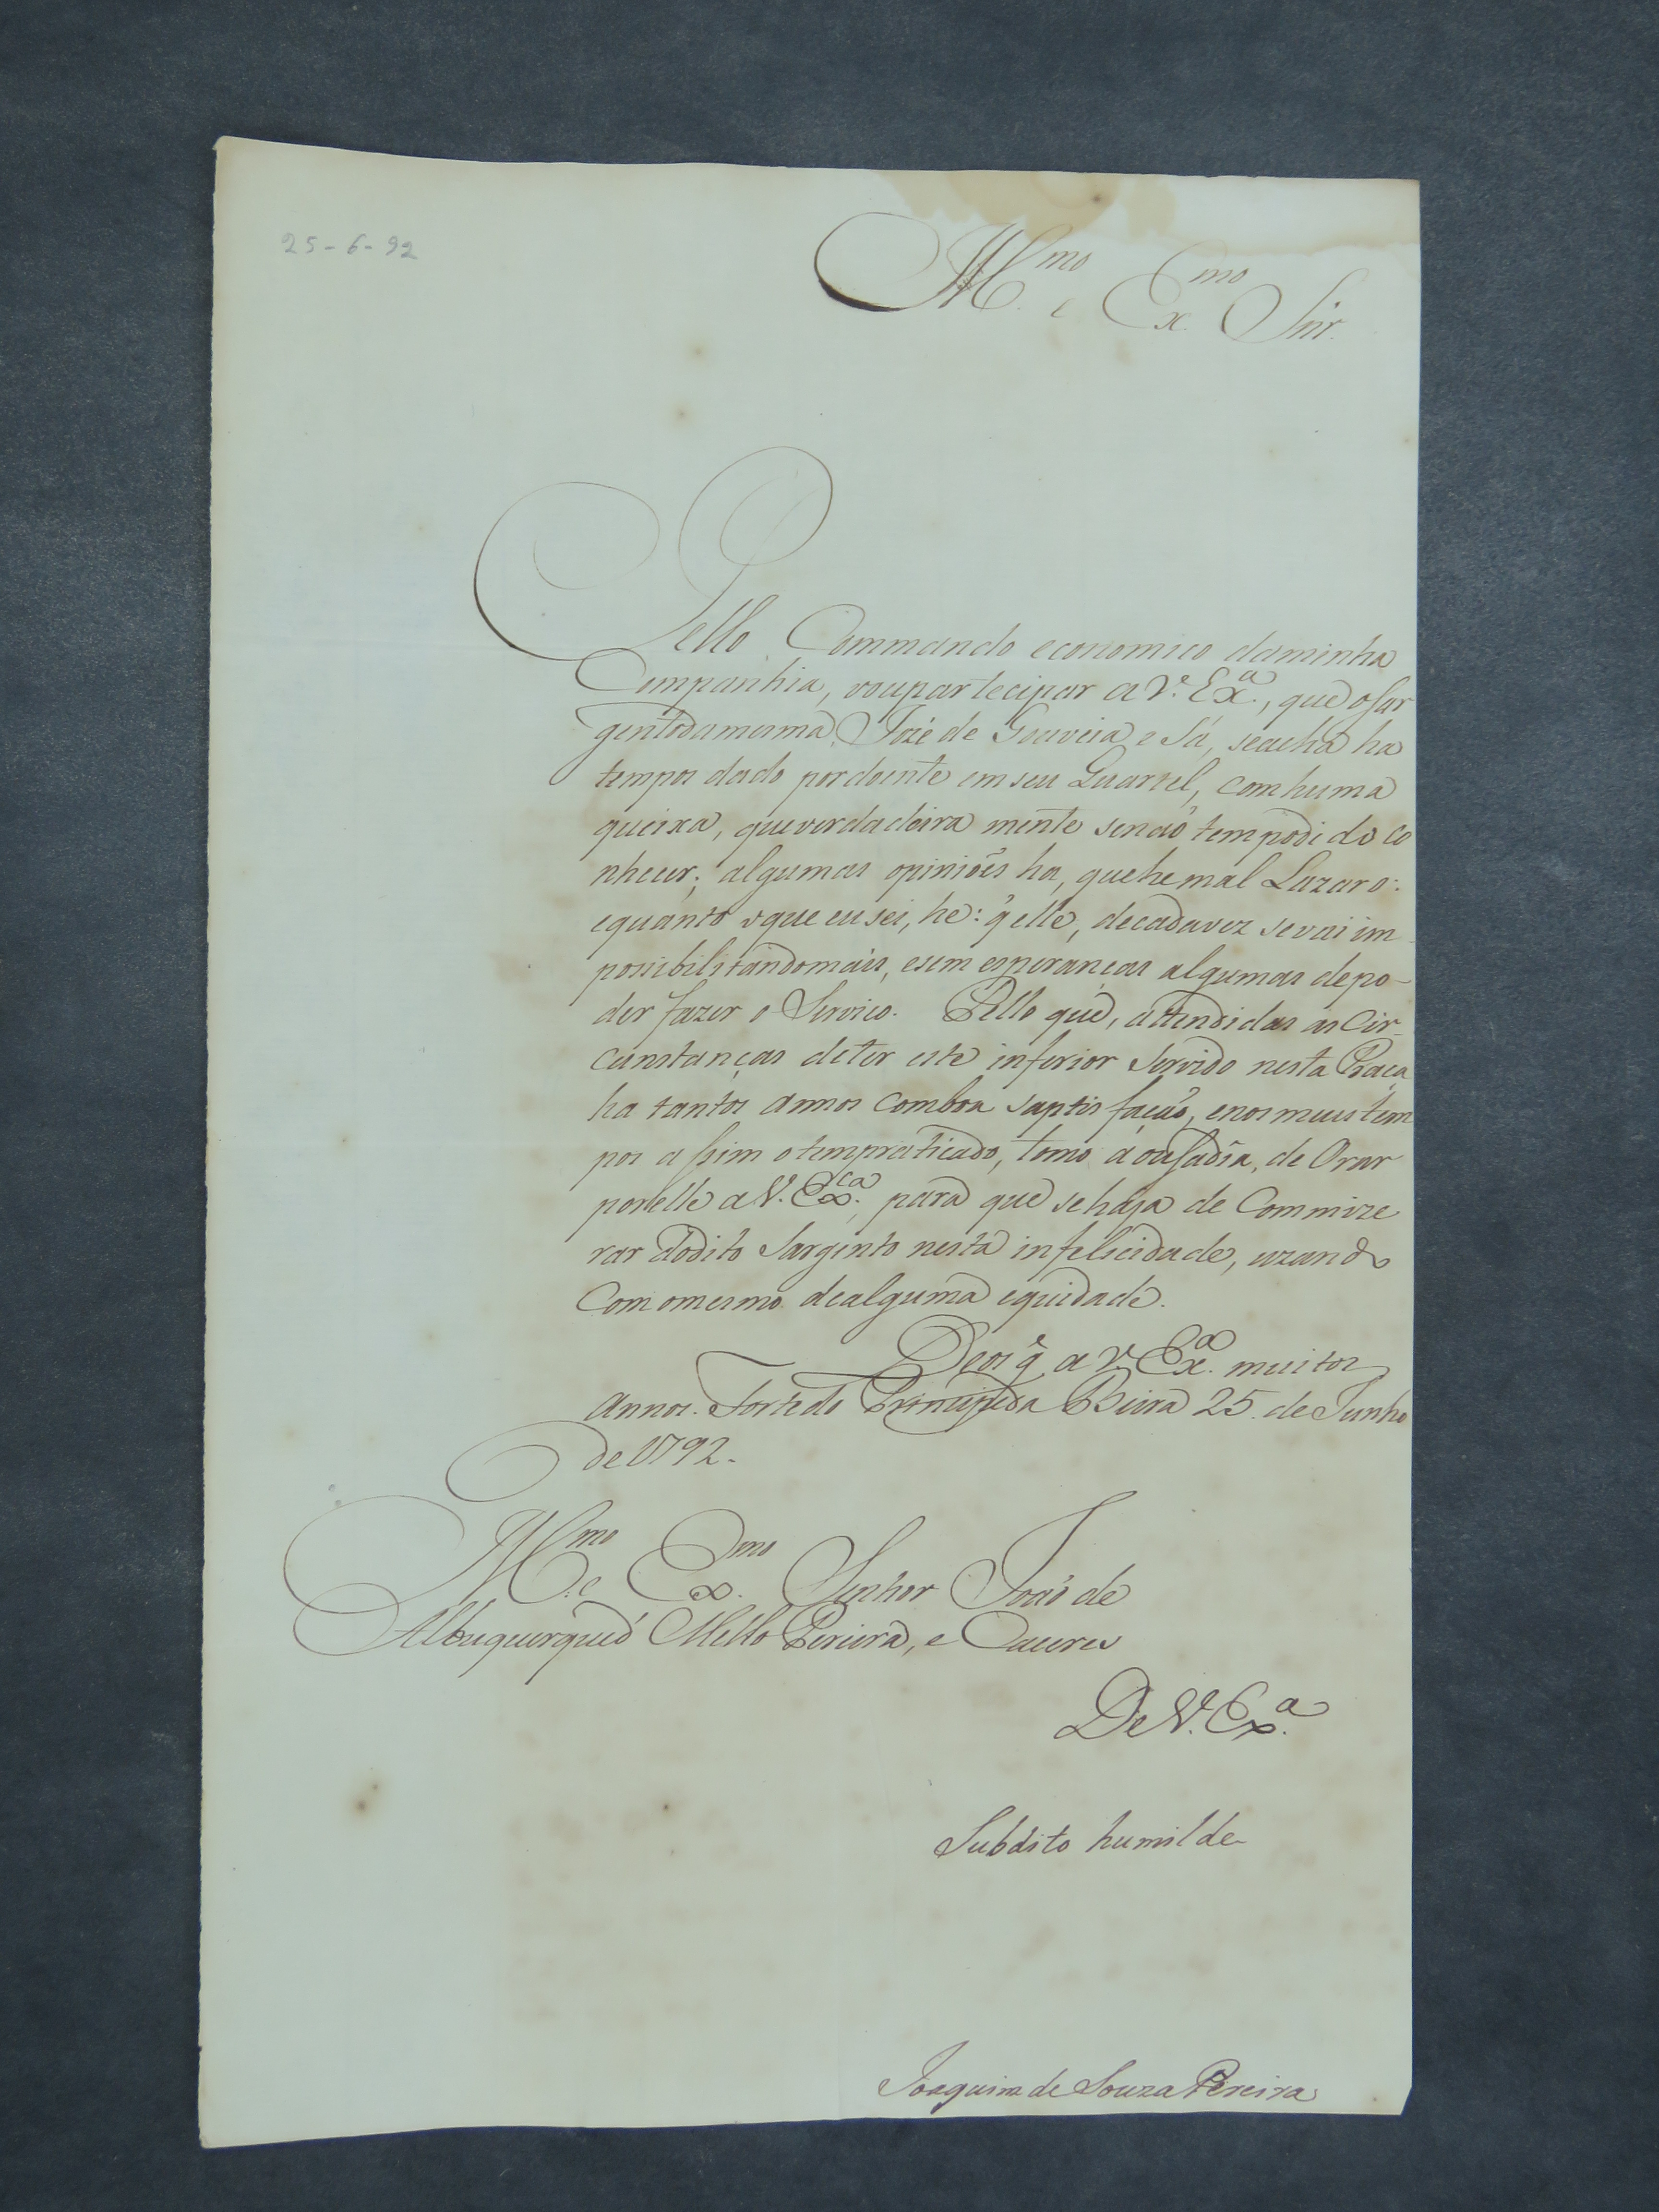 25-6-92
Ill.mo e Ex.mo Snr.
Pello Commando economico daminha
Companhia, voupartecipar a V.ª Ex.ª, que oSar
gentodamesma, Jozé de Gouveia e Sá, seacha ha
tempos dado pordoente em seu Quartel, com huma
queixa, queverdadeira mente senaõ tempodido co
nhecer; algumas opiniões ha, quehe mal Lazaro:
equanto oque eu sei, he: q̃ elle, decadavez sevai im
possibilitandomais, esem esperanças algumas depo-
der fazer o Serviço. Pello que, attendidas as Cir-
cunstanças deter este inferior Servido nesta Praça
ha tantos annos comboa saptisfaçaõ, enos meus tem
pos assim otempraticado, tomo a ouzadia, de Orar
porelle a V. Ex.ca, para que sehaja de Commize
rar dodito Sargento nesta infelicidade, uzando
Com omesmo dealguma equidade.
Deos g.e a V. Ex.ª muitos
annos. Forte do Principe da Beira 25. de Junho
de 1792.
Ill.mo e Ex.mo Senhor Joaõ de
Albuquerque de Mello Pereira, e Caceres
De V. Ex.ª
Subdito humilde
Joaquim de Souza Pereira